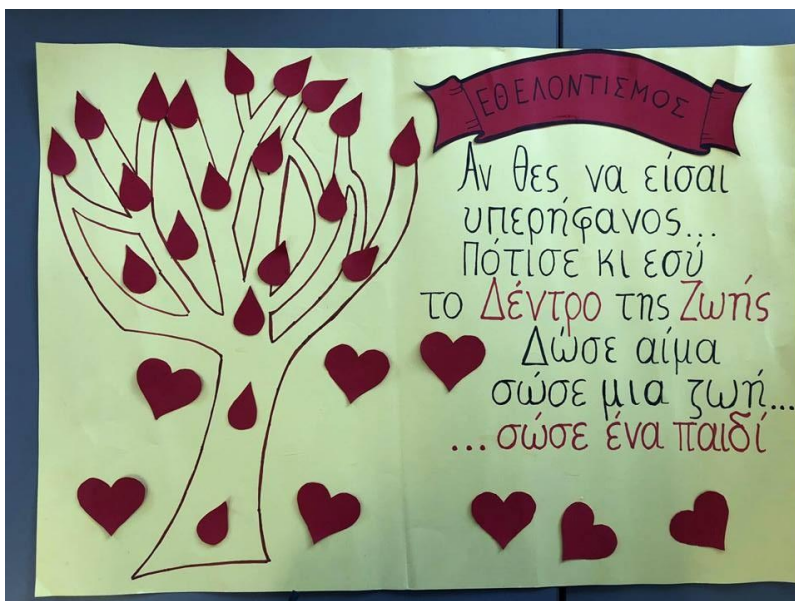 ΕΘΕΛΟΝΤΙΣΜΟΣ
Αν θες να είσαι
υπερήφανος...
Πότισε κι εσύ
το Δέντρο της Ζωής
Δώσε αίμα
σώσε μια ζωή...
...σώσε ένα παιδί